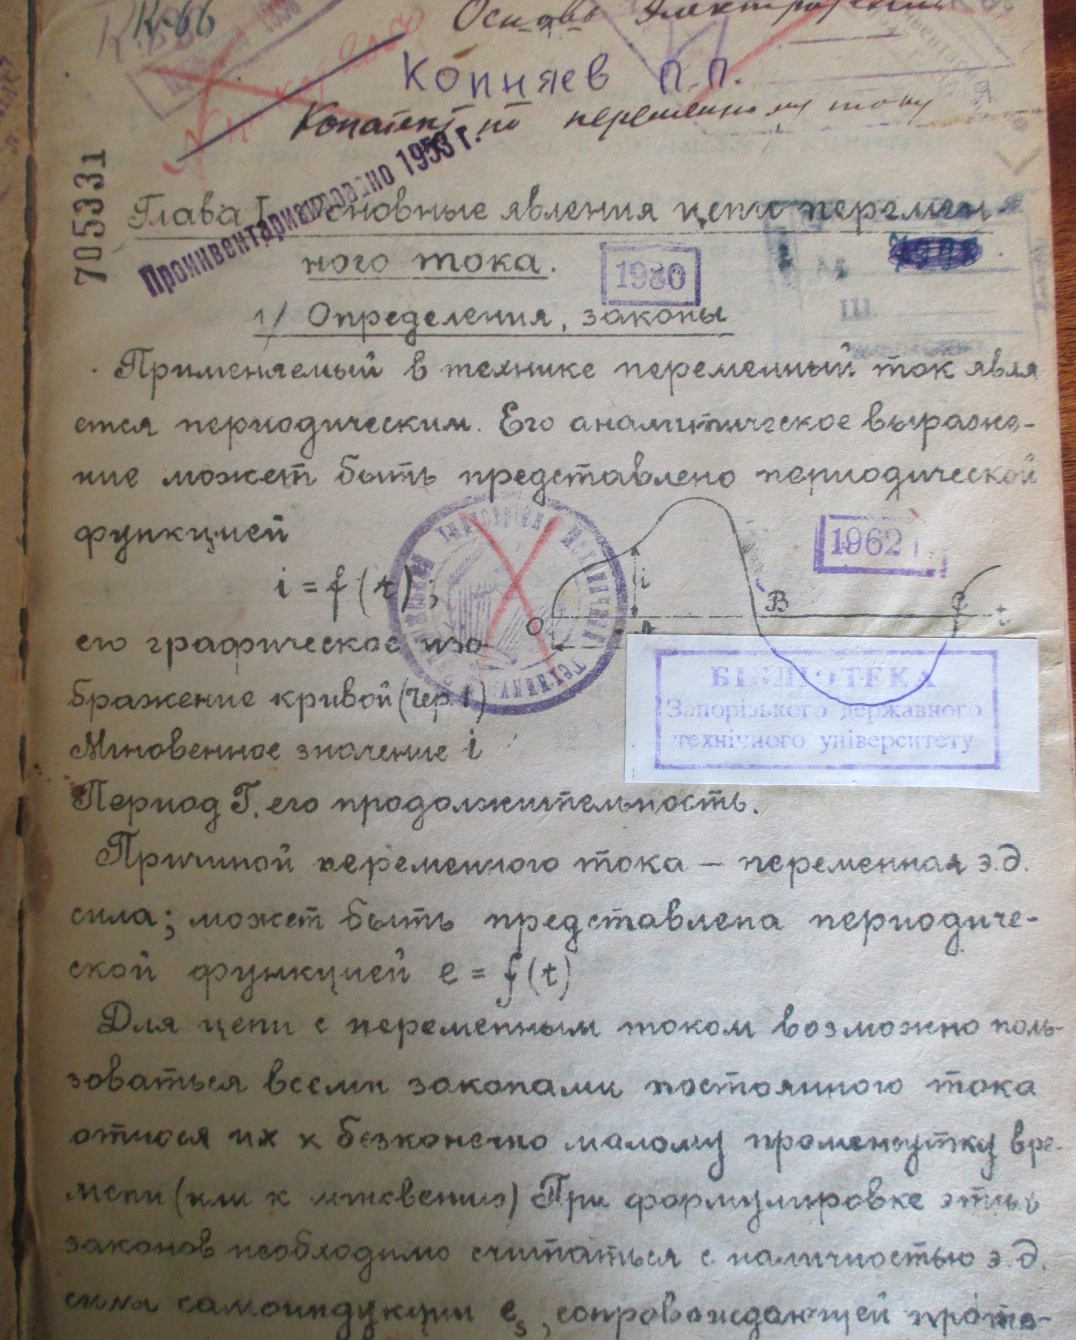 К-66
Основы электротехники
Копняев П.П.
Конспект по переменному току
Проинвентаризировано 1953 г.
705331
Глава I. Основные явления цепи перемен-
ного тока.
1980
1/ Определения, законы
Применяемый в технике переменный ток явля
ется периодическим. Его аналитическое выраже-
ние может быть представлено периодической
функцией
1962
i = f(t);
i
О
В
С
t
его графическое изо-
бражение кривой (Чер. 1)
Мгновенное значение i
БІБЛІОТЕКА
Запорізького державного
технічного університету
Период Т, его продолжительность.
Причиной переменного тока – переменная э.д.
сила; может быть представлена периодиче-
ской функцией e = f(t)
Для цепи с переменным током возможно поль-
зоваться всеми законами постоянного тока
относя их к безконечно малому промежутку вре-
мени (или к мгновению) При формулировке этих
законов необходимо считаться с наличностью э.д.
силы самоиндукции es, сопровождающей проте-